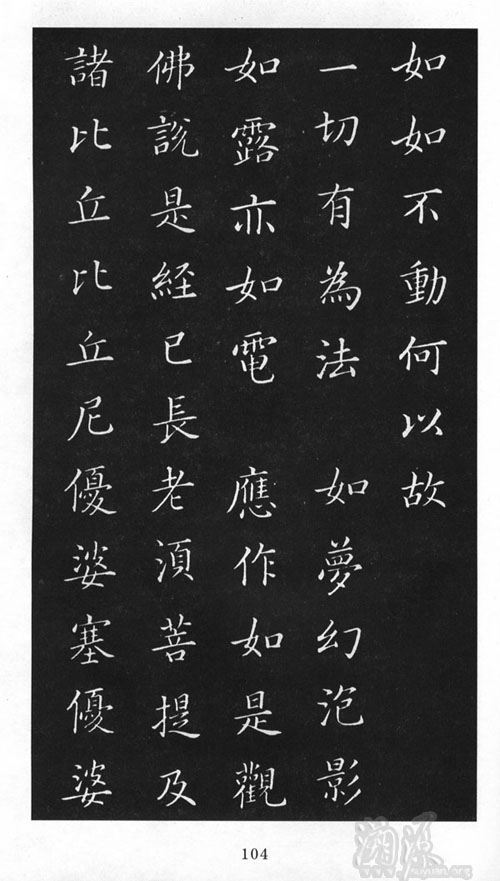 如如不動何以故
一切有為法 如夢幻泡影
如露亦如電 應作如是觀
佛說是經已長老須菩提及
諸比丘比丘尼優婆塞優婆
104